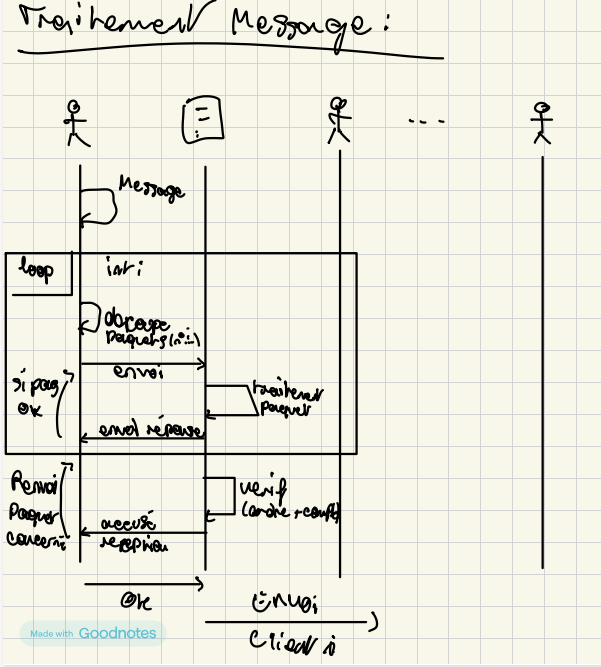 Traitement Message :
...
Message
loop
int i
découpe
Paquets (n°i)
envoi
si pas
OK
traitement
paquet
envoi réponse
Renvoi
Paquet
concerné
verif
(ordre +
accusé
reception
OK
Envoi
Client i
Made with Goodnotes